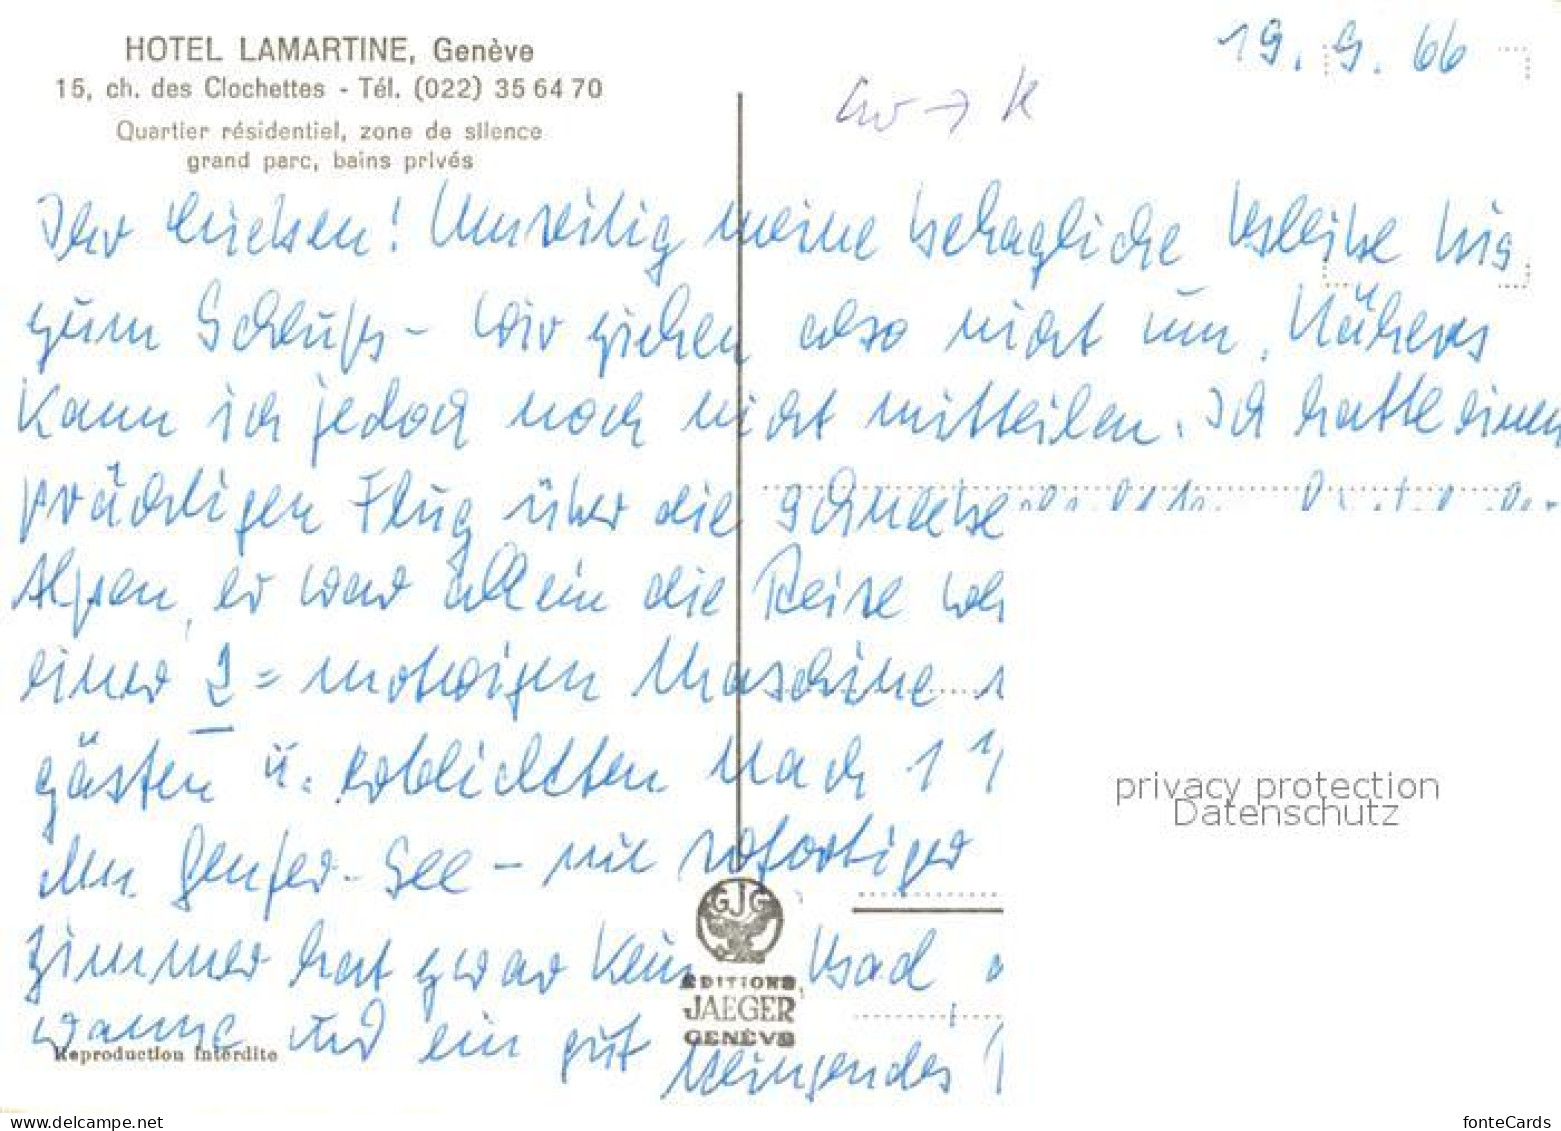 HOTEL LAMARTINE, Genève
15, ch. des Clochettes - Tél. (022) 35 64 70
Quartier résidentiel, zone de silence
grand parc, bains privés
19. 9. 66
Ihr Lieben! Einstweilig meine behagliche Bleibe bis
zum Schluß - wir ziehen also nicht um. Näheres
kann ich jedoch noch nicht mitteilen. Ich hatte einen
prächtigen Flug über die
Alpen, er war allein die Reise
einer 2 = motorigen Maschine
gästen u. erblickten nach 1
den Genfer-See - mit sofortiger
zimmer hat zwar kein Bad
wanne und ein gut
EDITIONS
JAEGER
GENÈVE
Reproduction interdite
privacy protection
Datenschutz
www.delcampe.net
fonteCards